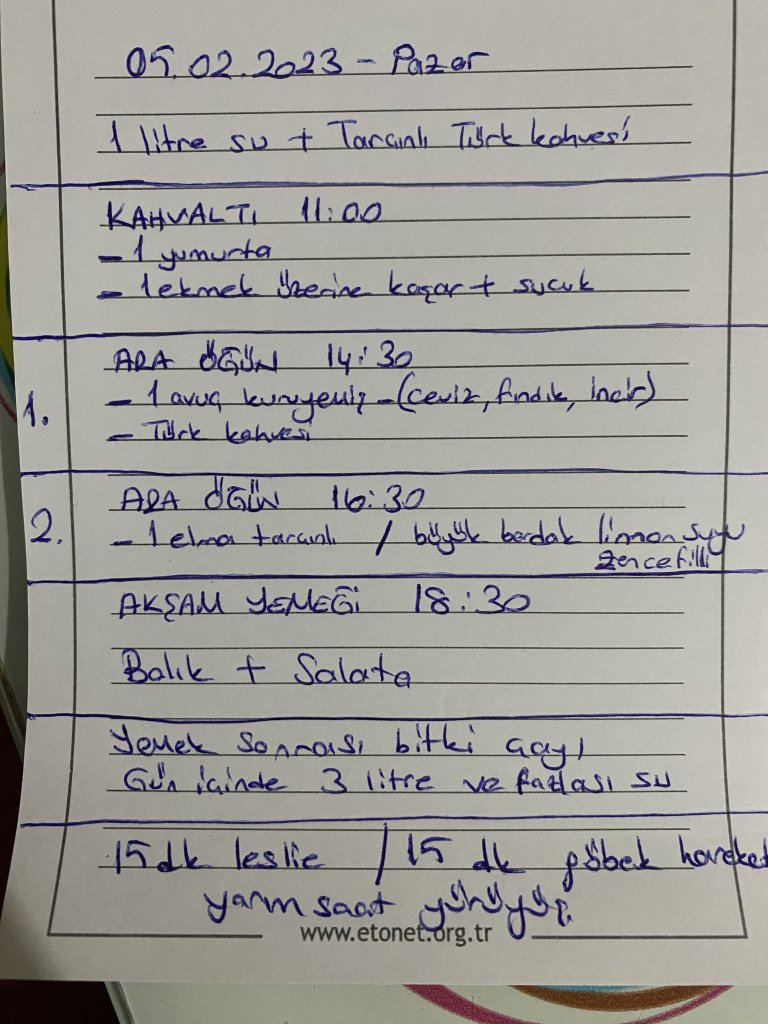 05.02.2023 - Pazar
1 litre su + Tarçınlı Türk kahvesi
KAHVALTI 11:00
- 1 yumurta
- 1 ekmek üzerine kaşar + sucuk
ARA ÖĞÜN 14:30
1. - 1 avuç kuruyemiş - (ceviz, fındık, incir)
- Türk kahvesi
ARA ÖĞÜN 16:30
2. - 1 elma tarçınlı / büyük bardak limon suyu
zencefilli
AKŞAM YEMEĞİ 18:30
Balık + Salata
Yemek sonrası bitki çayı
Gün içinde 3 litre ve fazlası su
15 dk leslie / 15 dk göbek hareket
yarım saat yürüyüş
www.etonet.org.tr